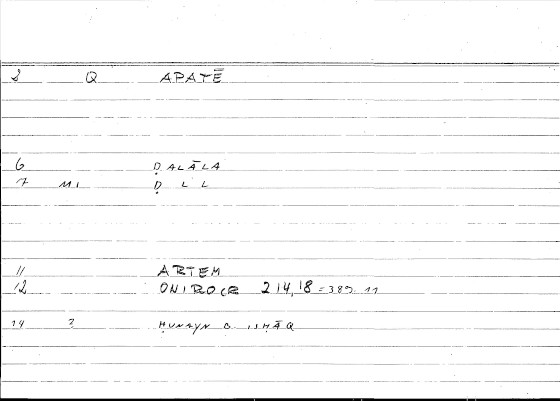 2 Q APATĒ
6 ḌALĀLA
7 M1 Ḍ L L
11 ARTEM
12 ONIROCR 214,18 = 389. 11
14 2 ḤUNAYN B. ISḤĀQ